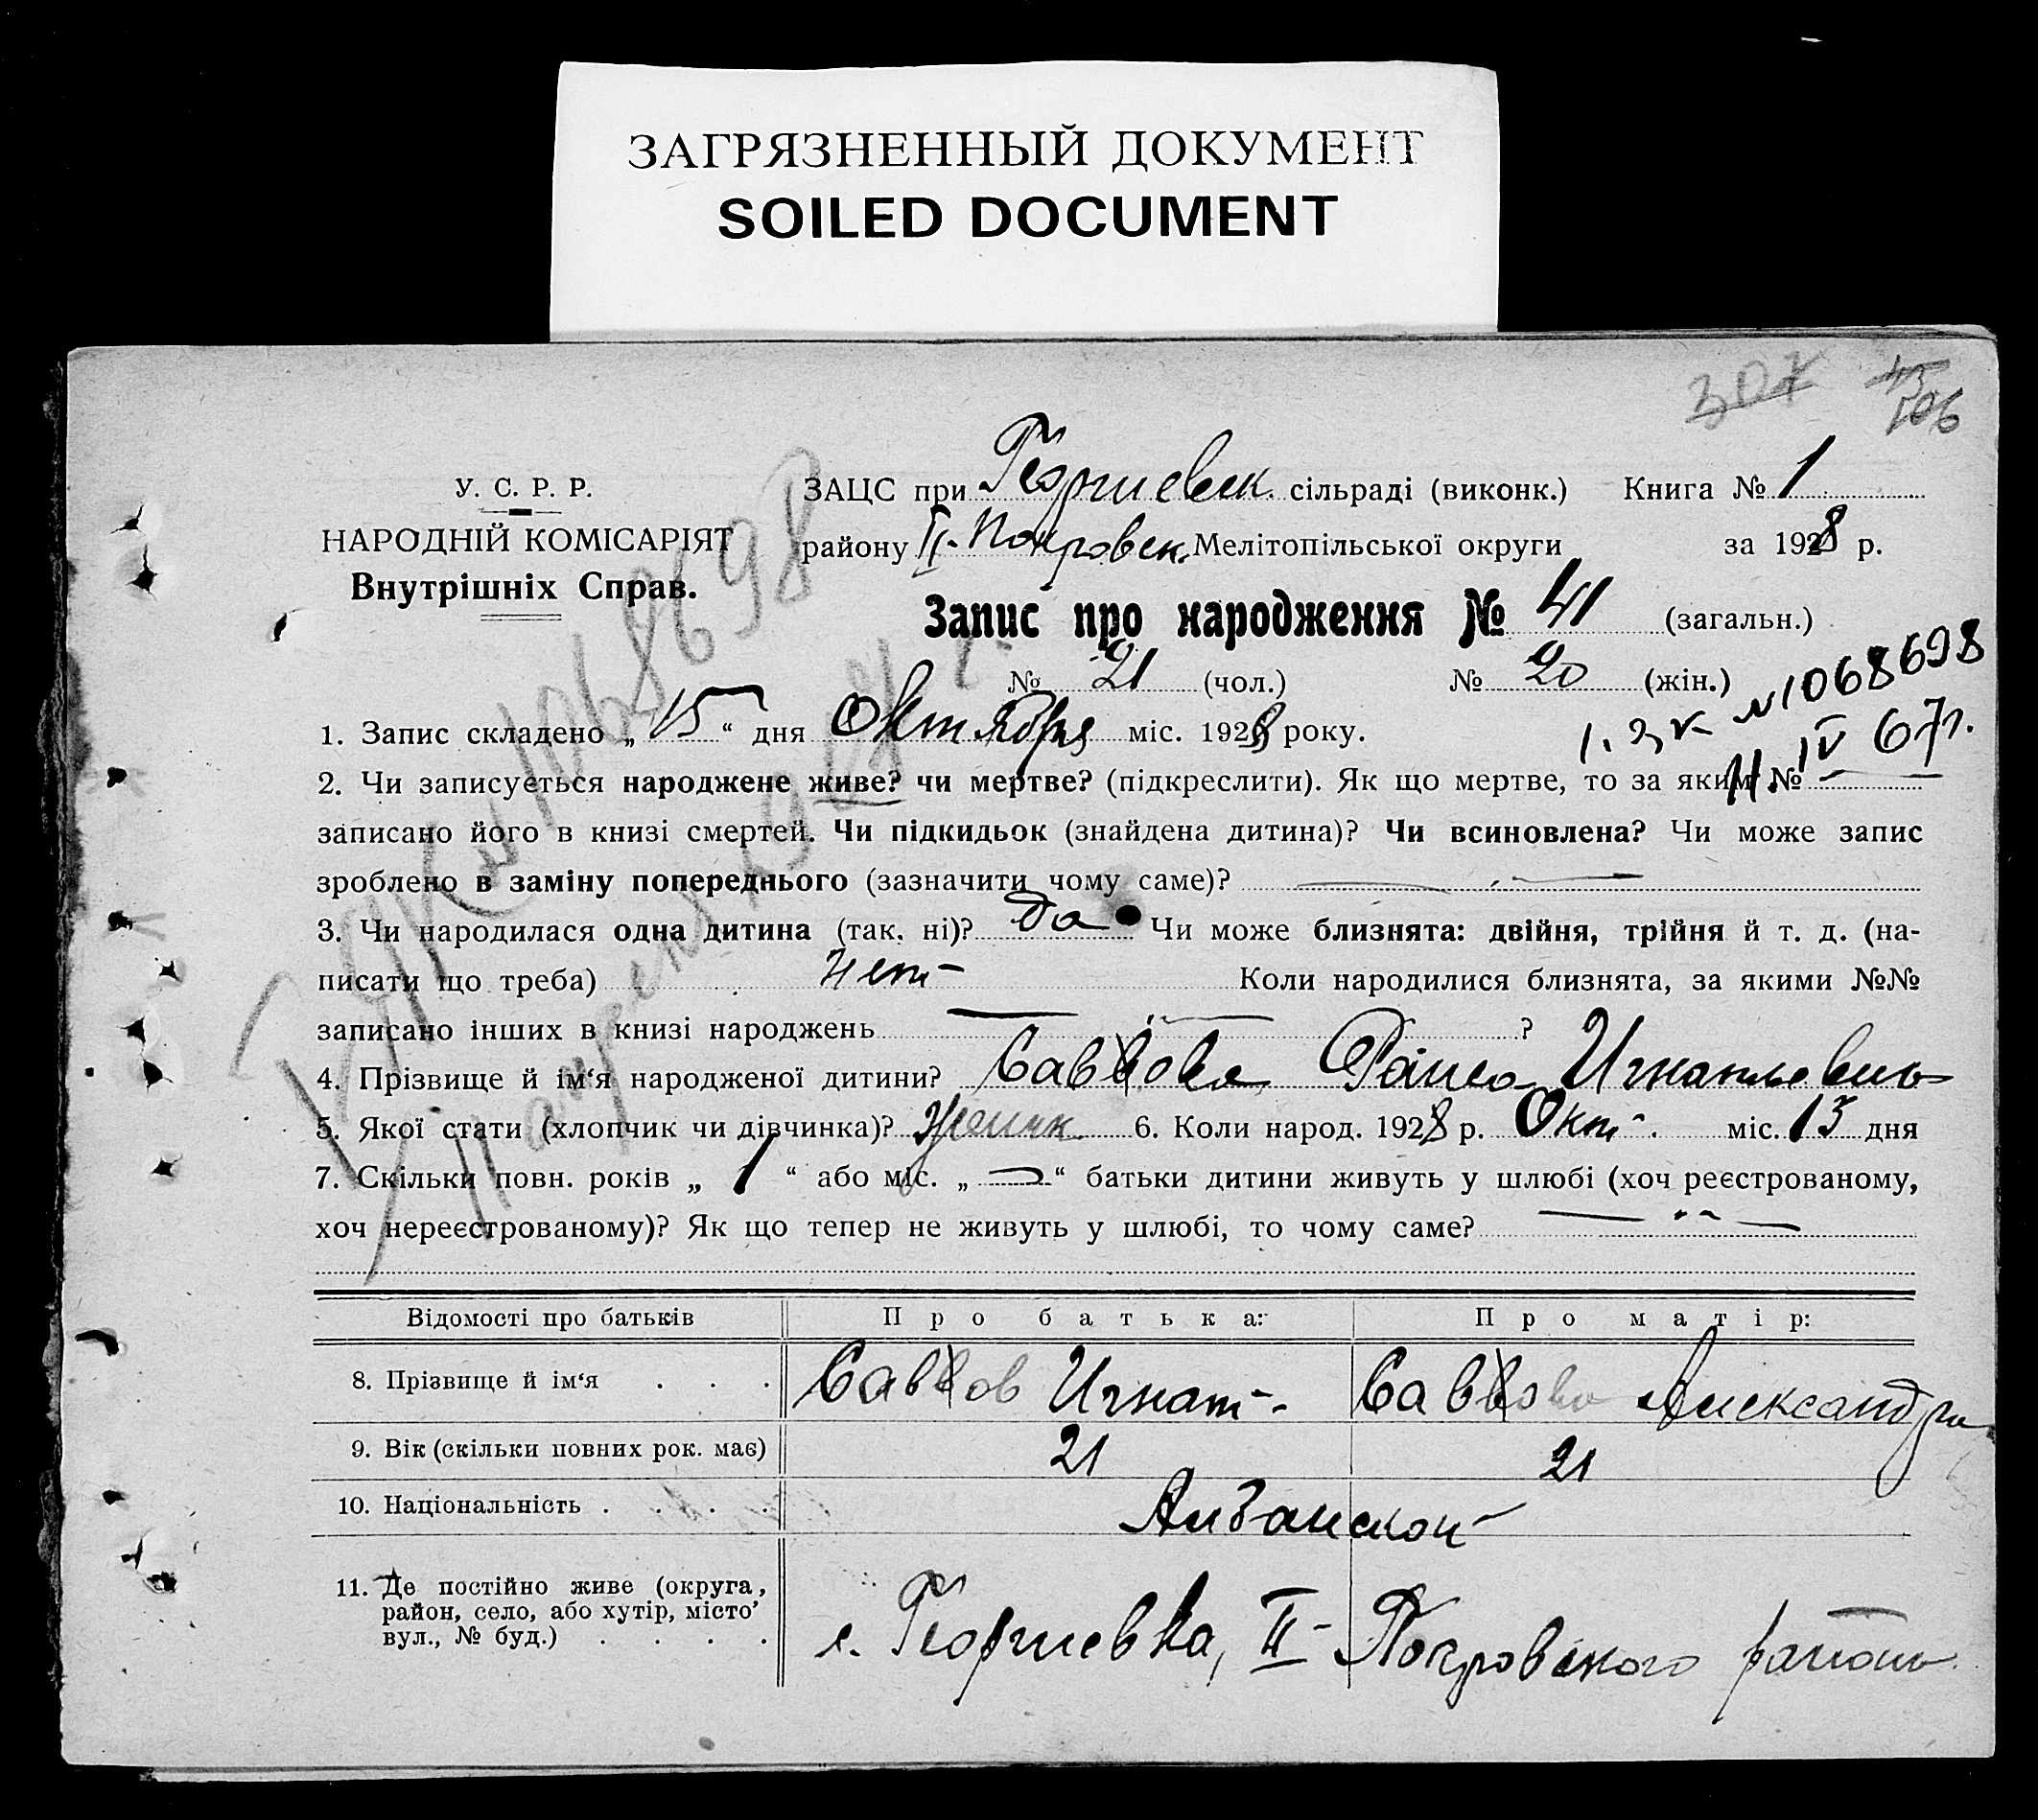 ЗАГРЯЗНЕННЫЙ ДОКУМЕНТ
SOILED DOCUMENT
307 106
У. С. Р. Р.
НАРОДНІЙ КОМІСАРІЯТ
Внутрішніх Справ.
ЗАЦС при Георгиевск. сільраді (виконк.) Книга № 1
району II-Покровск. Мелітопільської округи за 1928 р.
Запис про народження № 41 (загальн.)
№ 21 (чол.) № 20 (жін.)
№ 1068698
11 IV 67 г.
1. Запис складено „ 15 “ дня Октября міс. 1928 року.
2. Чи записується народжене живе? чи мертве? (підкреслити). Як що мертве, то за яким №
записано його в книзі смертей. Чи підкидьок (знайдена дитина)? Чи всиновлена? Чи може запис
зроблено в заміну попереднього (зазначити чому саме)?
3. Чи народилася одна дитина (так, ні)? Да Чи може близнята: двійня, трійня й т. д. (на-
писати що треба) Нет Коли народилися близнята, за якими №№
записано інших в книзі народжень ?
4. Прізвище й ім‘я народженої дитини? Саввова Раиса Игнатьевна
5. Якої стати (хлопчик чи дівчинка)? Женск 6. Коли народ. 1928 р. Окт. міс. 13 дня
7. Скільки повн. років „ 1 “ або міс. „ — “ батьки дитини живуть у шлюбі (хоч реєстрованому,
хоч нереєстрованому)? Як що тепер не живуть у шлюбі, то чому саме?
Відомості про батьків Про батька: Про матір:
8. Прізвище й ім‘я . . . Саввов Игнат Саввова Александра
9. Вік (скільки повних рок. має) 21 21
10. Національність . . . . Албанской
11. Де постійно живе (округа,
район, село, або хутір, місто’
вул., № буд.) . . . .
с. Георгиевка, II-Покровского района
1068698